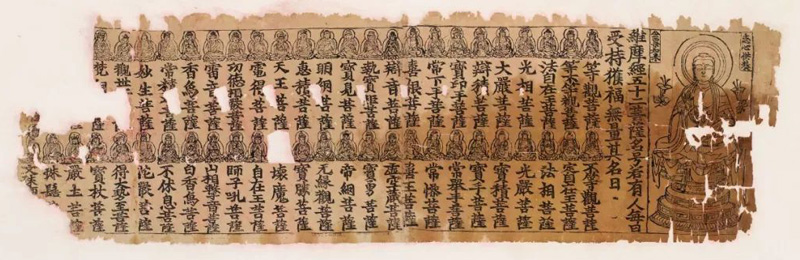 志心供養
維摩經五十二菩薩名号若有人每日
受持獲福無量其名曰
等觀菩薩
不等觀菩薩
等不等觀菩薩
定自在王菩薩
法自在王菩薩
法相菩薩
光相菩薩
光嚴菩薩
大嚴菩薩
寶積菩薩
辯積菩薩
寶手菩薩
寶印手菩薩
常舉手菩薩
常下手菩薩
常慘菩薩
喜根菩薩
喜王菩薩
辯音菩薩
虛空藏菩薩
執寶炬菩薩
寶勇菩薩
寶見菩薩
帝網菩薩
明網菩薩
无緣觀菩薩
惠積菩薩
寶勝菩薩
天王菩薩
壞魔菩薩
電得菩薩
自在王菩薩
功德相嚴菩薩
師子吼菩薩
雷音菩薩
山相擊音菩薩
香象菩薩
白香象菩薩
常精
不休息菩薩
妙生菩薩
菩薩
觀世
得大勢菩薩
梵
寶杖菩薩
嚴土菩薩
珠髻
文殊